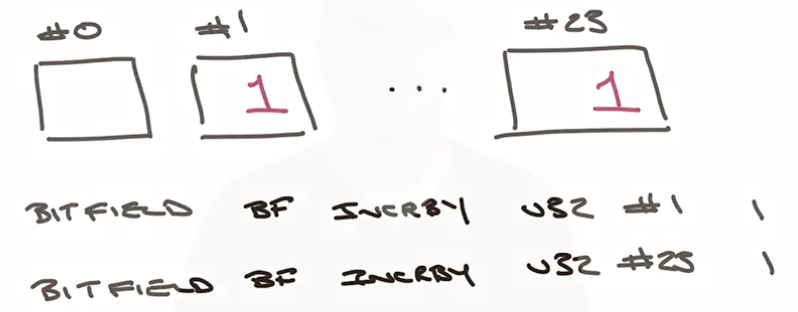 #0 #1 #23
1 ... 1
BITFIELD BF INCRBY U32 #1 1
BITFIELD BF INCRBY U32 #23 1